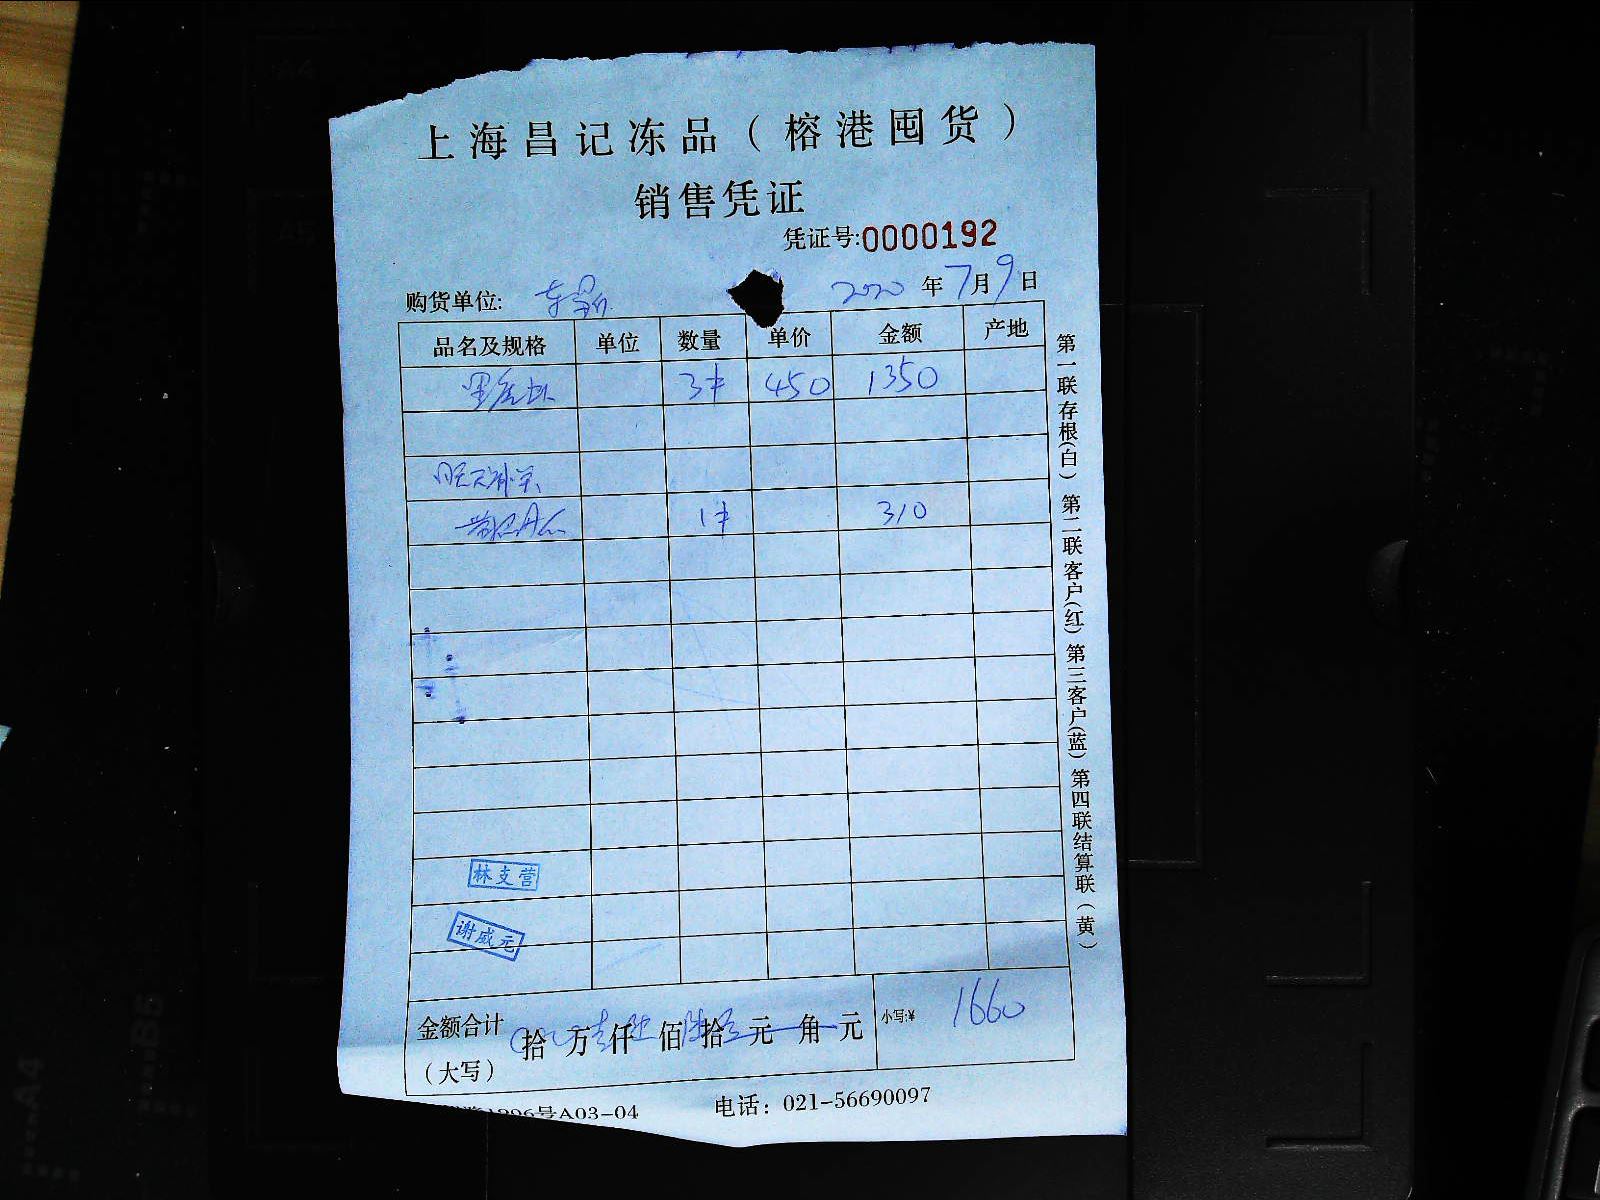 上海昌记冻品（榕港囤货）
销售凭证
凭证号:0000192
购货单位: 2020 年 7 月 9 日
品名及规格 单位 数量 单价 金额 产地
黑虎虾 3件 450 1350
1件 310
林支营
谢威元
金额合计（大写） 拾 万壹仟陆佰陆拾零元 角 元 小写:¥ 1660
号A03-04 电话：021-56690097
第一联存根(白) 第二联客户(红) 第三客户(蓝) 第四联结算联(黄)